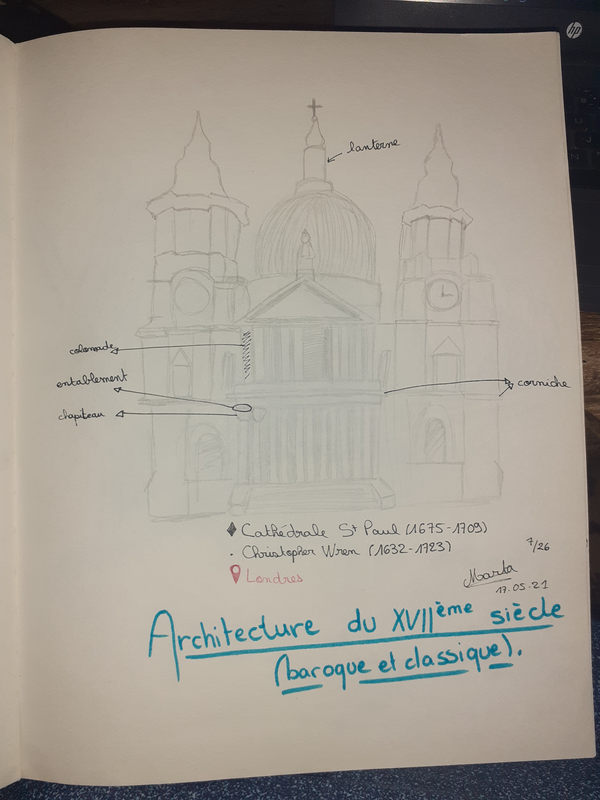 hp
lanterne
colonnade
entablement
chapiteau
corniche
Cathédrale St Paul (1675-1709)
. Christopher Wren (1632-1723)
Londres
7/26
Marta
17.05.21
Architecture du XVIIème siècle
(baroque et classique).